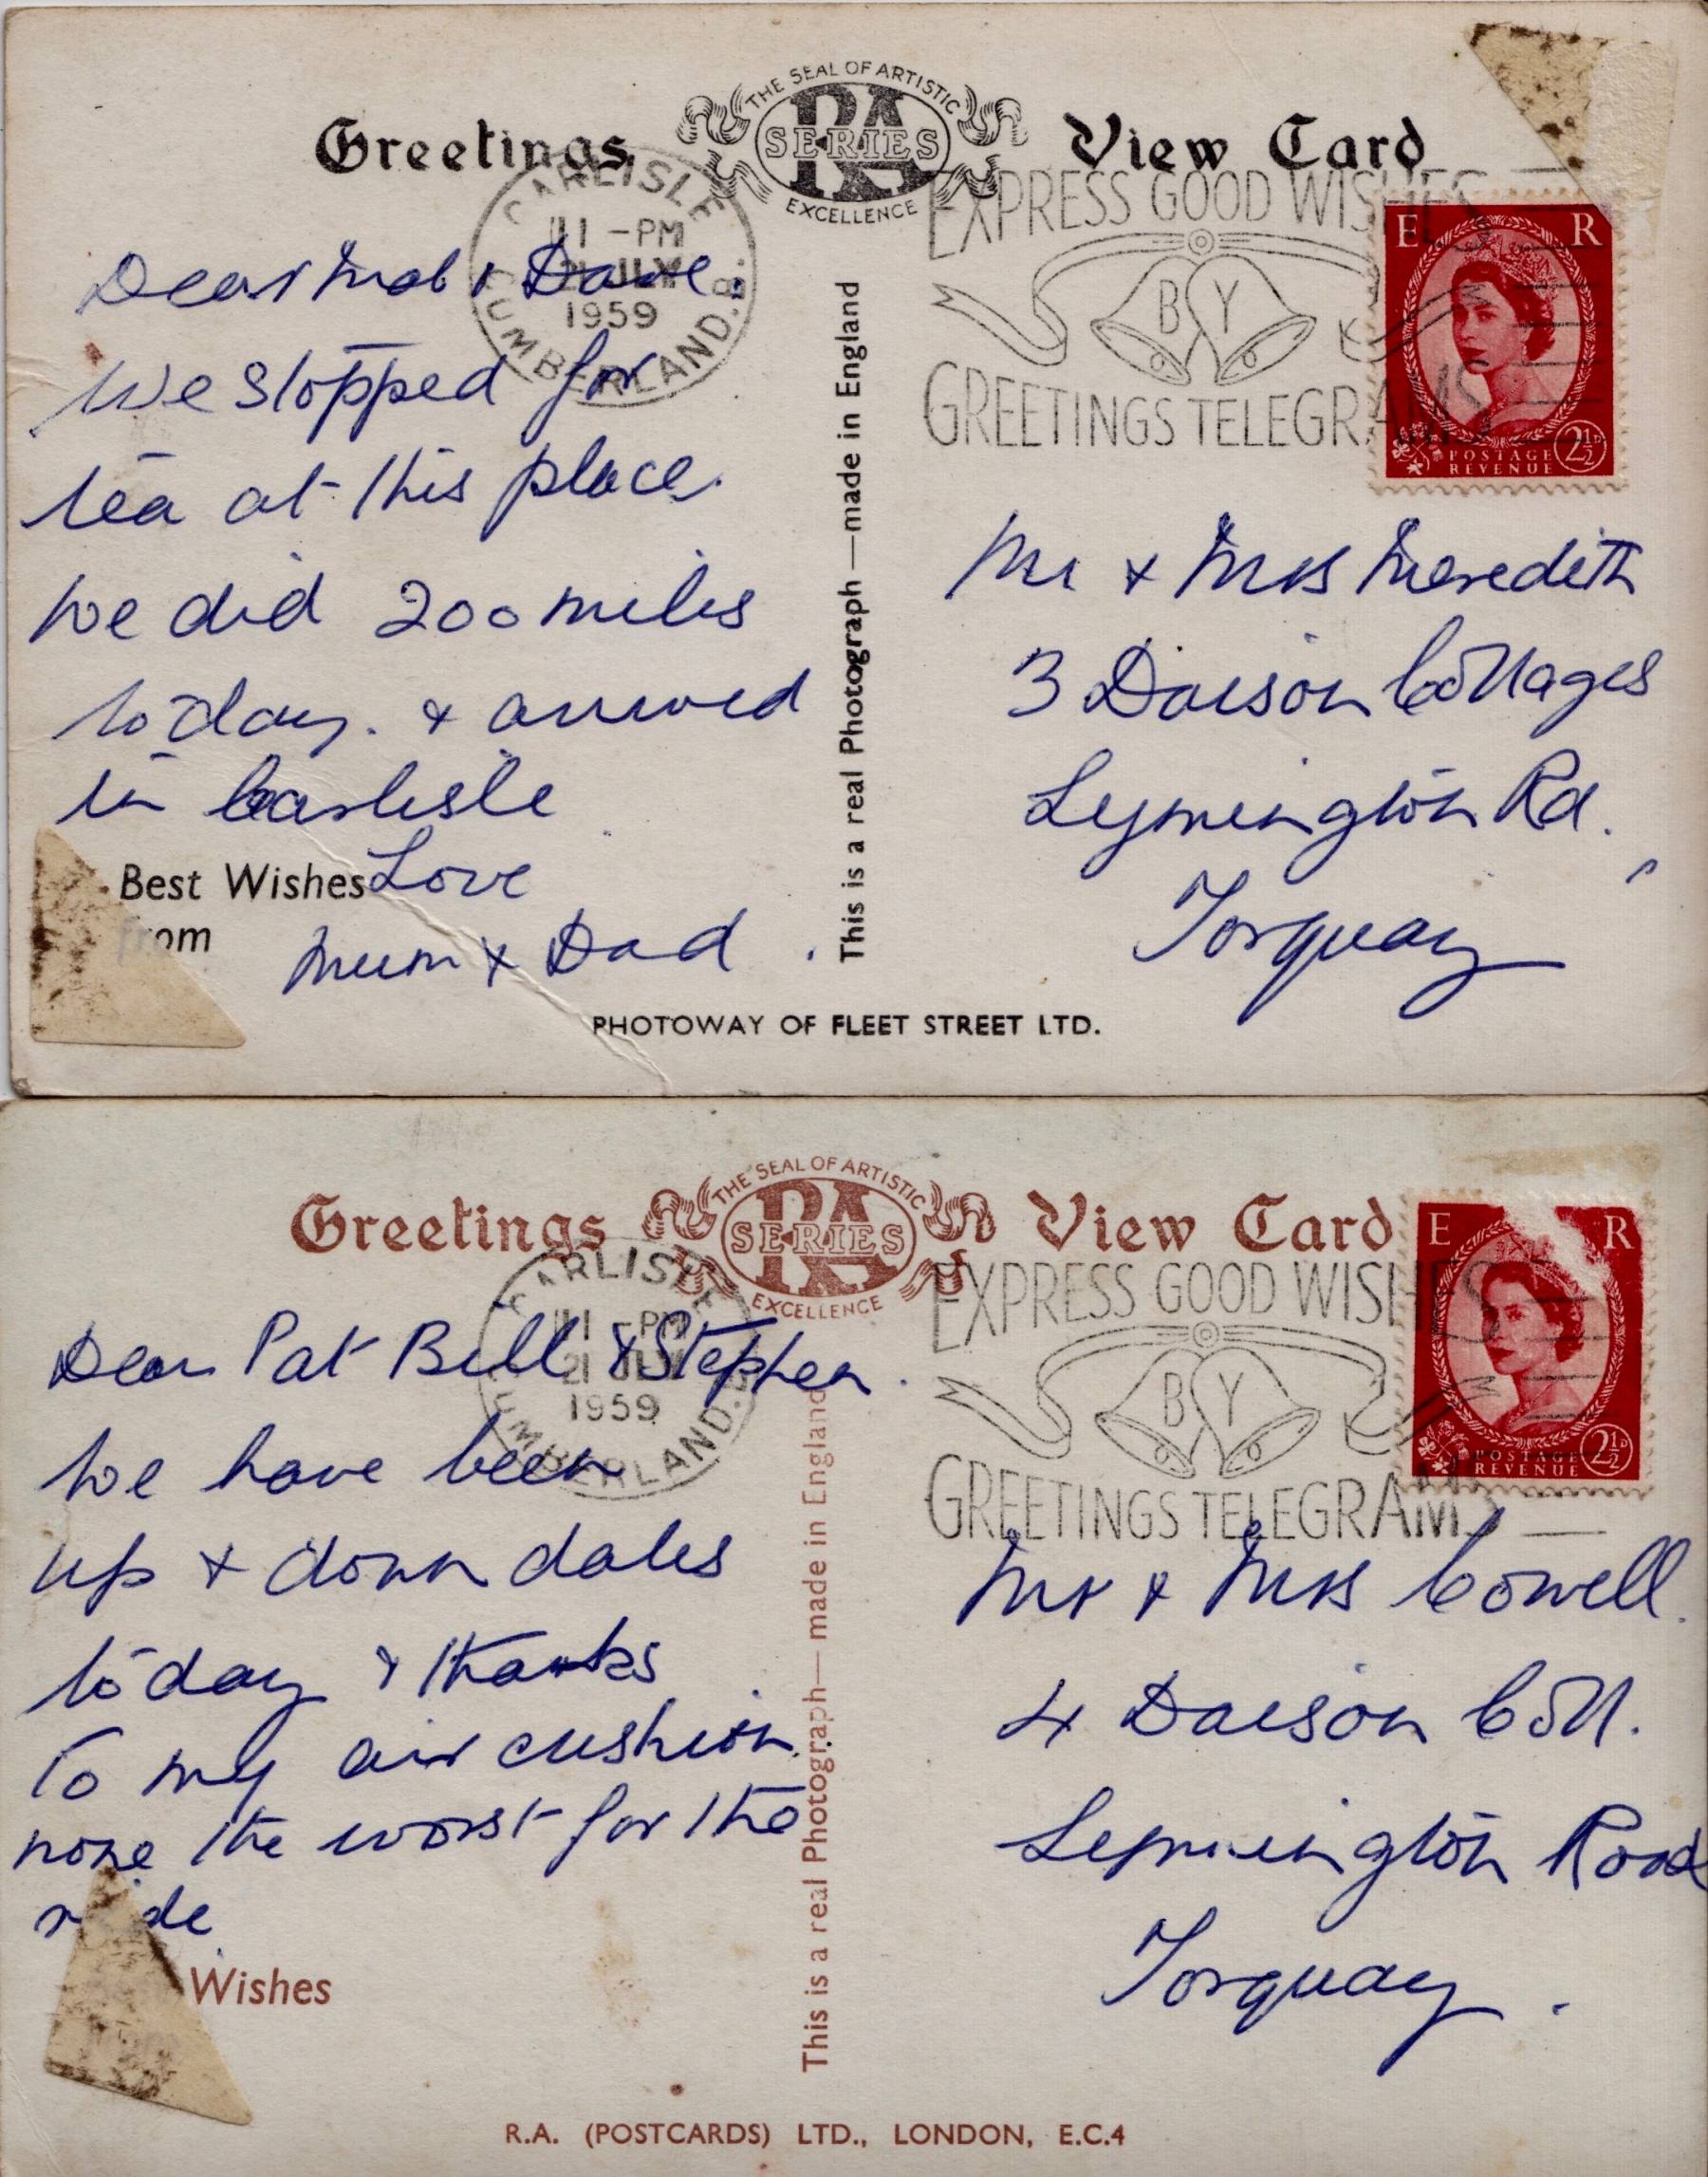 Greetings
THE SEAL OF ARTISTIC
RA
SERIES
EXCELLENCE
View Card
CARLISLE
11 - PM
21 JLY
1959
CUMBERLAND.
EXPRESS GOOD WISHES
BY
GREETINGS TELEGRAMS
E R
POSTAGE
REVENUE
2½D
Dear Mab & Dave.
We stopped for
tea at this place.
We did 200 miles
today. & arrived
in Carlisle
Best Wishes Love
from Mum & Dad.
This is a real Photograph—made in England
Mr & Mrs Meredith
3 Daison Cottages
Lymington Rd.
Torquay
PHOTOWAY OF FLEET STREET LTD.
Greetings
THE SEAL OF ARTISTIC
RA
SERIES
EXCELLENCE
View Card
CARLISLE
11 - PM
21 JLY
1959
CUMBERLAND.
EXPRESS GOOD WISHES
BY
GREETINGS TELEGRAMS
E R
POSTAGE
REVENUE
2½D
Dear Pat Bill & Stephen.
We have been
up & down dales
today & thanks
to my air cushion.
none the worst for the
ride
Wishes
This is a real Photograph—made in England
Mr & Mrs Cowell.
4 Daison Cott.
Lymington Road
Torquay.
R.A. (POSTCARDS) LTD., LONDON, E.C.4